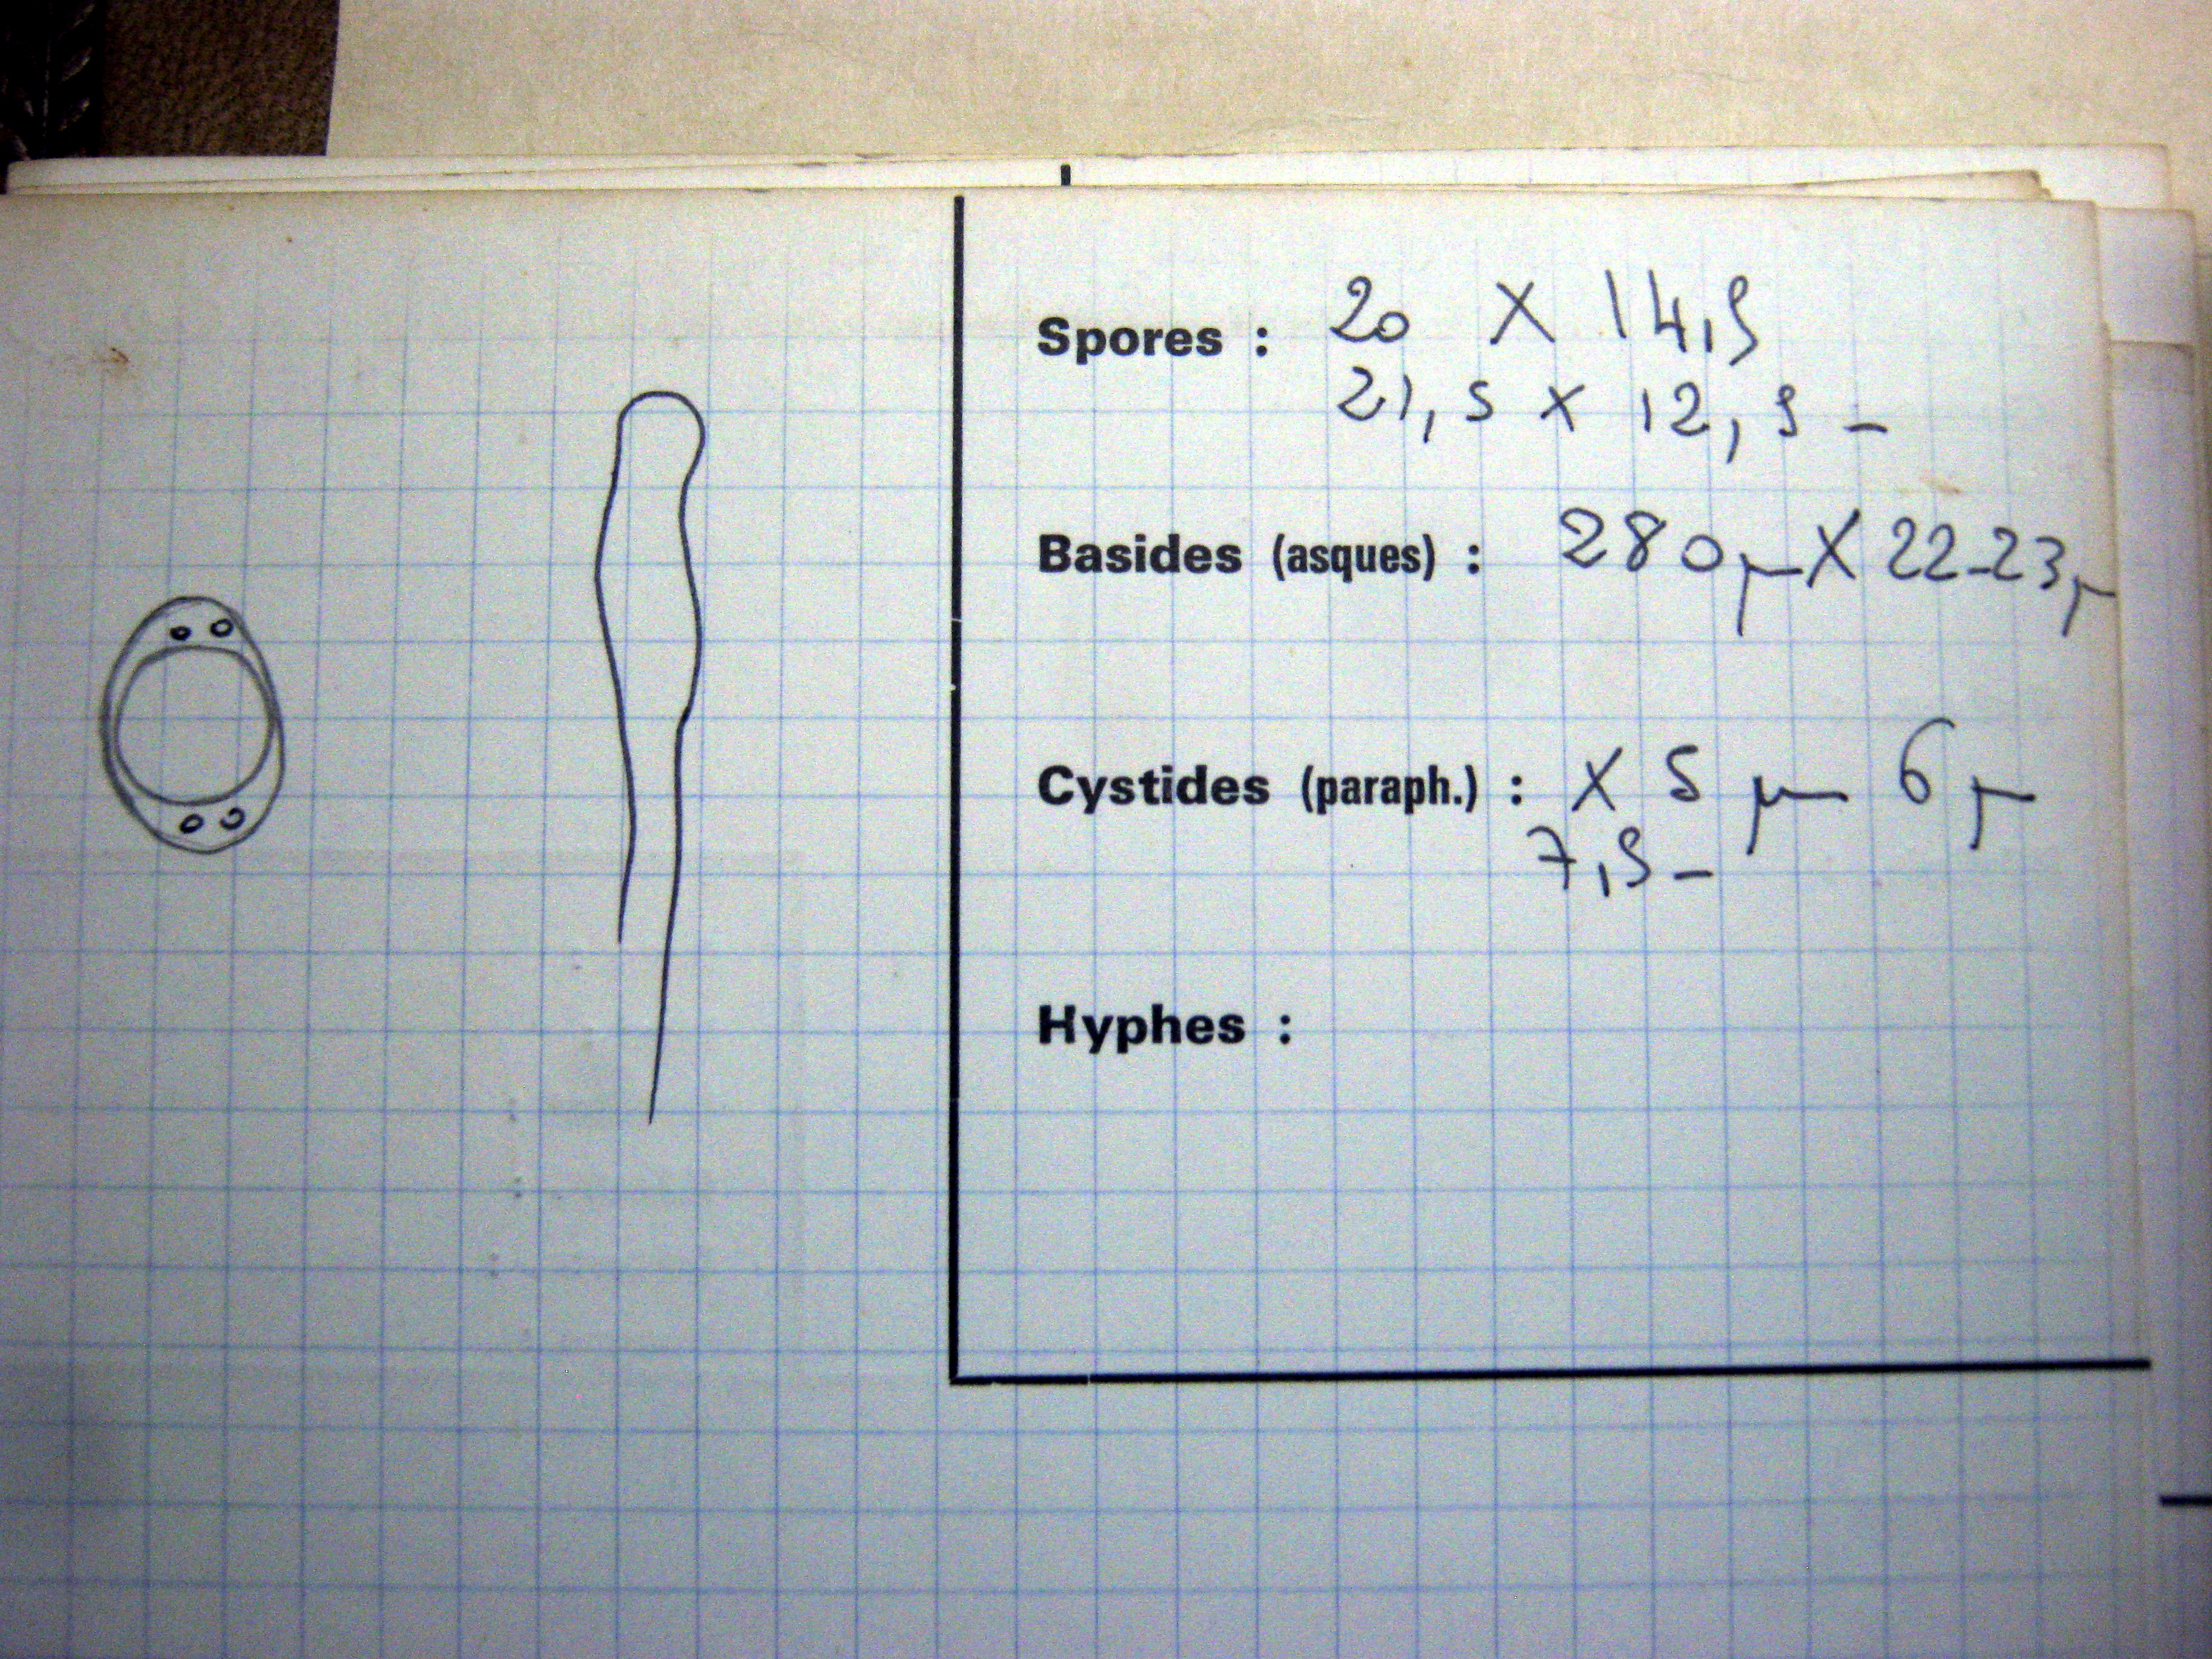 Spores : 20 X 14,5
21,5 x 12,5 -
Basides (asques) : 280µ X 22-23µ
Cystides (paraph.) : X 5 µ 6 µ
7,5 -
Hyphes :